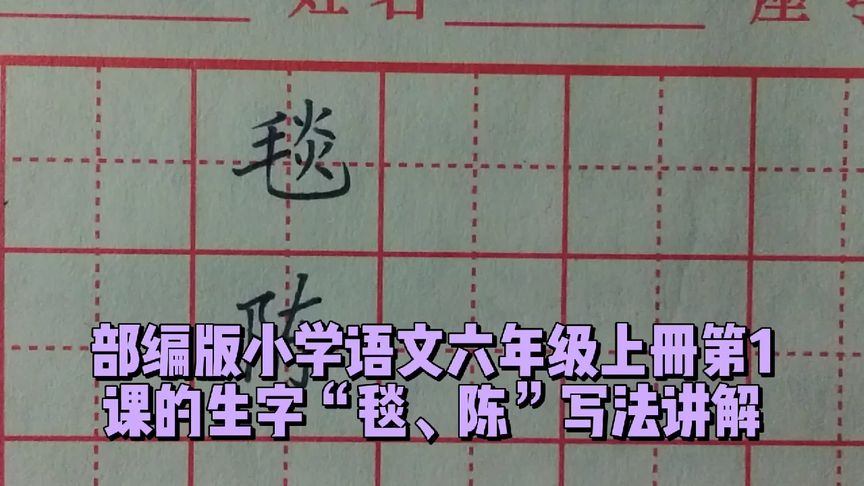 姓名
座号
毯
陈
部编版小学语文六年级上册第1
课的生字“毯、陈”写法讲解